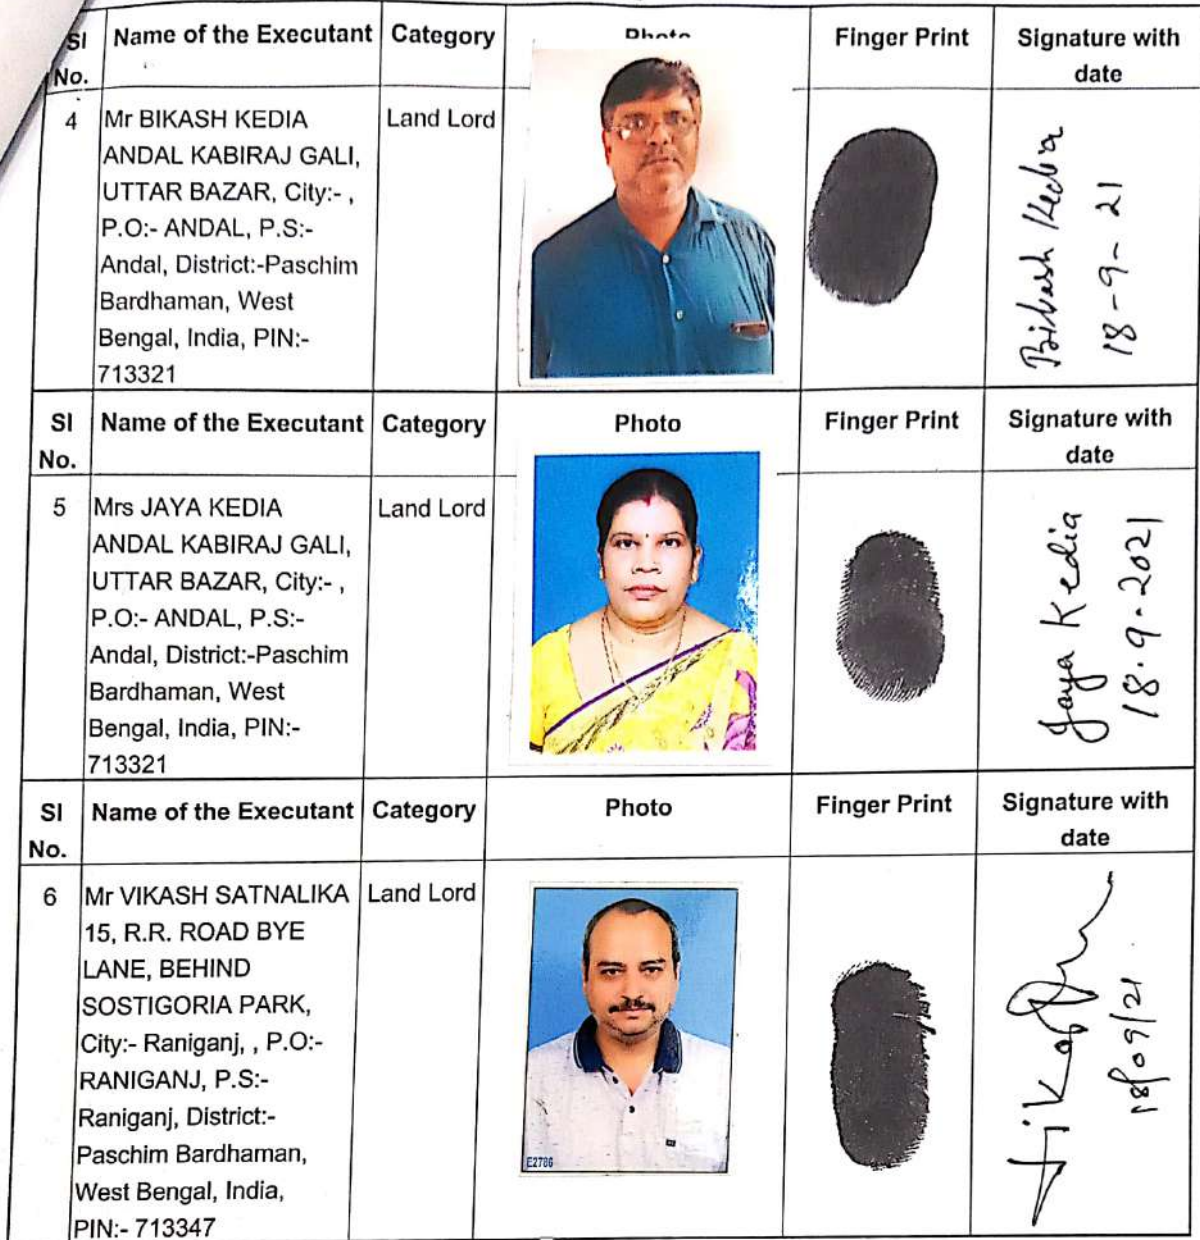 Sl No. Name of the Executant Category Photo Finger Print Signature with date
4 Mr BIKASH KEDIA Land Lord
ANDAL KABIRAJ GALI,
UTTAR BAZAR, City:- ,
P.O:- ANDAL, P.S:-
Andal, District:-Paschim
Bardhaman, West
Bengal, India, PIN:-
713321
Bikash Kedia
18-9-21
Sl No. Name of the Executant Category Photo Finger Print Signature with date
5 Mrs JAYA KEDIA Land Lord
ANDAL KABIRAJ GALI,
UTTAR BAZAR, City:- ,
P.O:- ANDAL, P.S:-
Andal, District:-Paschim
Bardhaman, West
Bengal, India, PIN:-
713321
Jaya Kedia
18.9.2021
Sl No. Name of the Executant Category Photo Finger Print Signature with date
6 Mr VIKASH SATNALIKA Land Lord
15, R.R. ROAD BYE
LANE, BEHIND
SOSTIGORIA PARK,
City:- Raniganj, , P.O:-
RANIGANJ, P.S:-
Raniganj, District:-
Paschim Bardhaman,
West Bengal, India,
PIN:- 713347
E2786
18/09/21